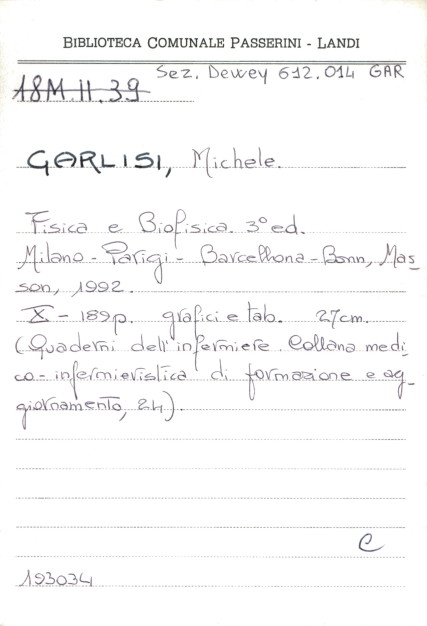 BIBLIOTECA COMUNALE PASSERINI - LANDI
Sez. Dewey 612.014 GAR
18M.II.39
GARLISI, Michele.
Fisica e Biofisica. 3° ed.
Milano - Parigi - Barcellona - Bonn, Mas=
son, 1992.
X - 189p. grafici e tab. 27cm.
(Quaderni dell'infermiere. Collana medi_
co-infermieristica di formazione e ag_
giornamento, 24).
C
193034